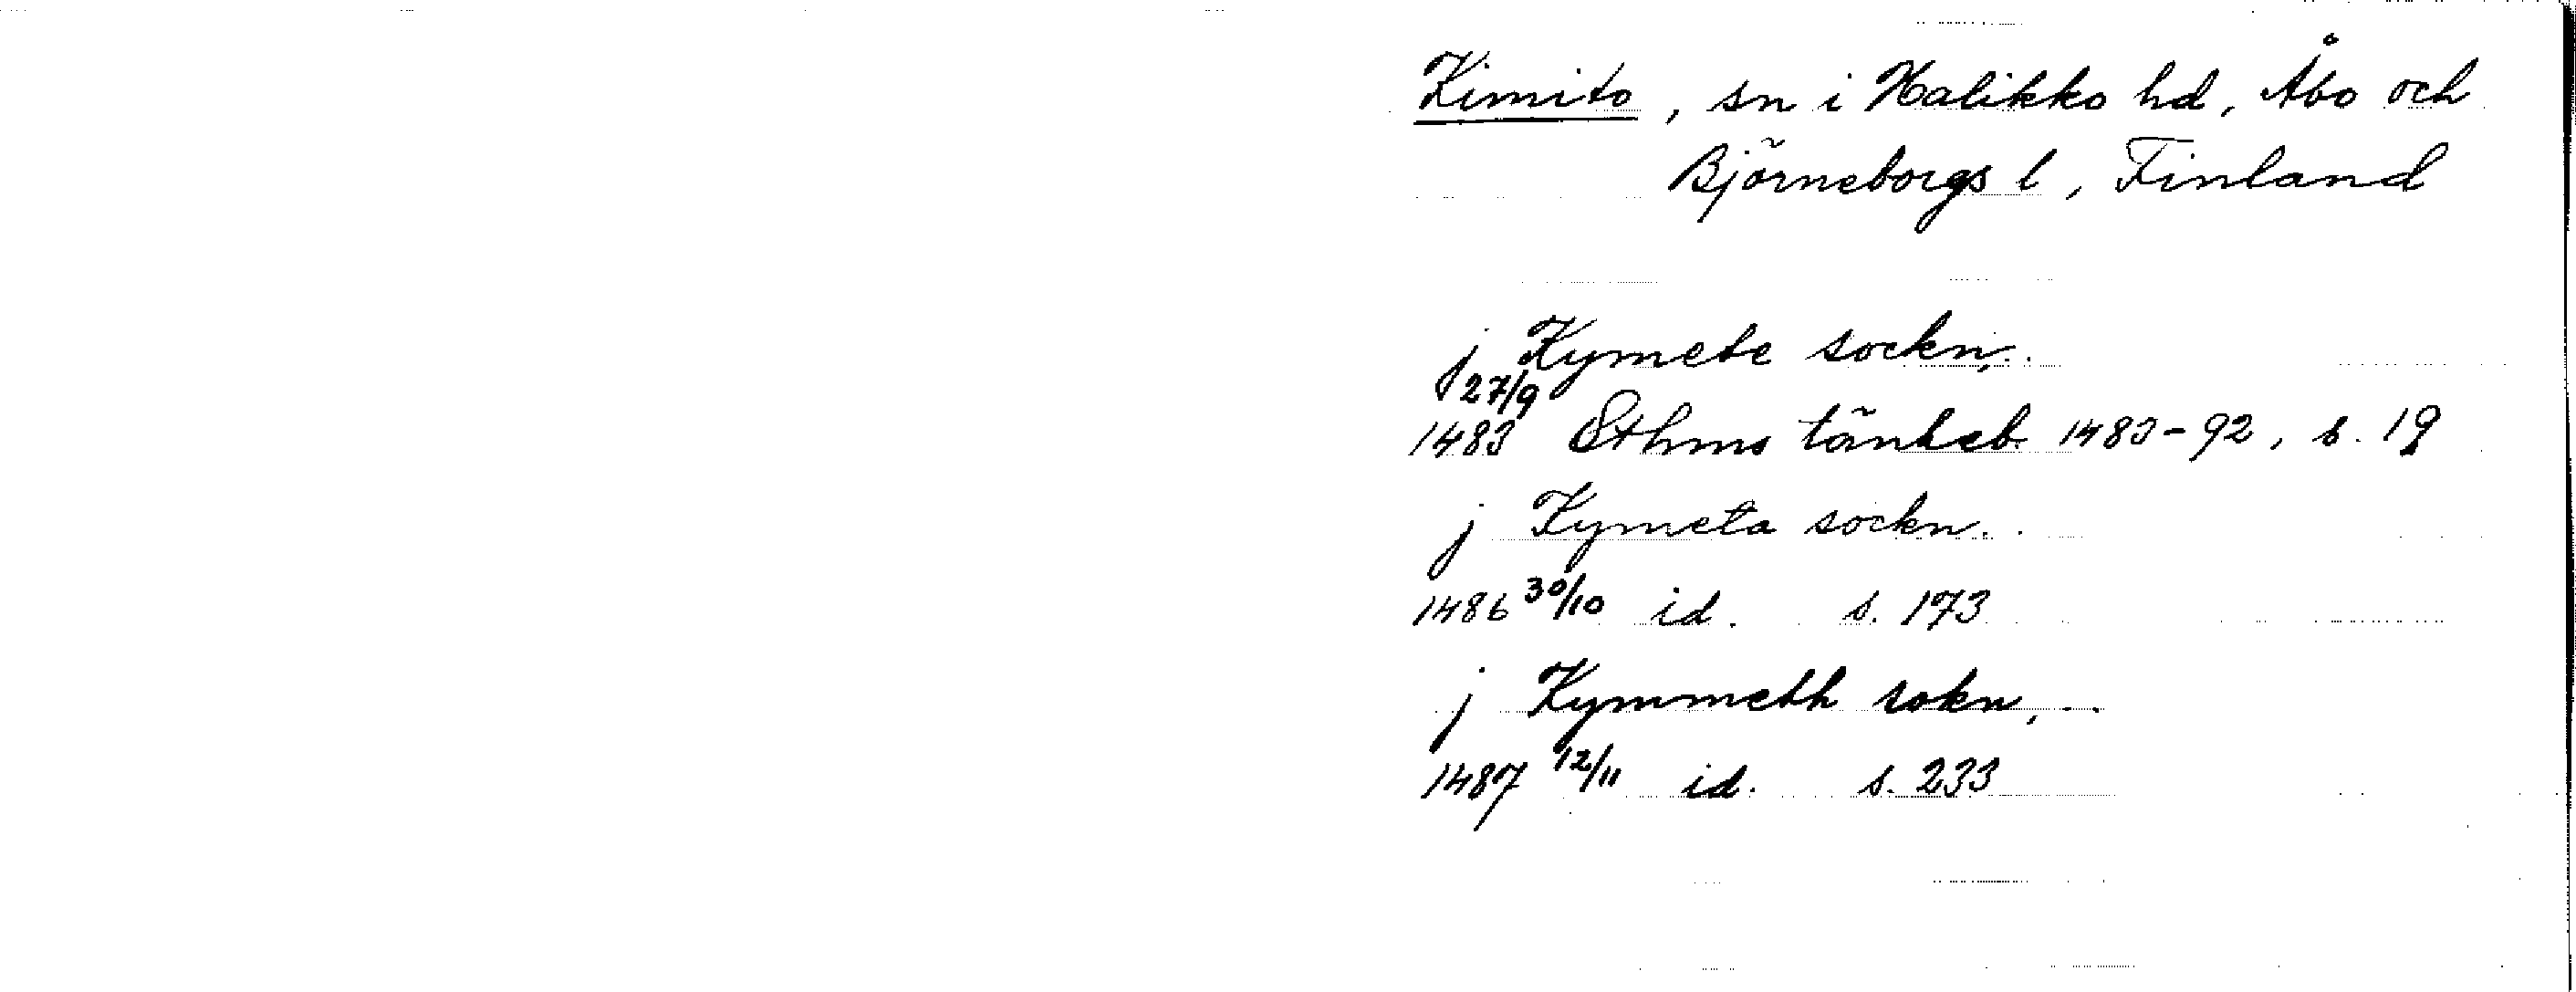 Kimito, sn i Halikko hd, Åbo och
Björneborgs l, Finland
j Kymete sockn,..
27/9
1483 Sthms tänkeb. 1483-92, s. 19
j Kymeta sockn...
1486 30/10 id. s. 173
j Kymmeth sokn,...
1487 12/11 id. s. 233